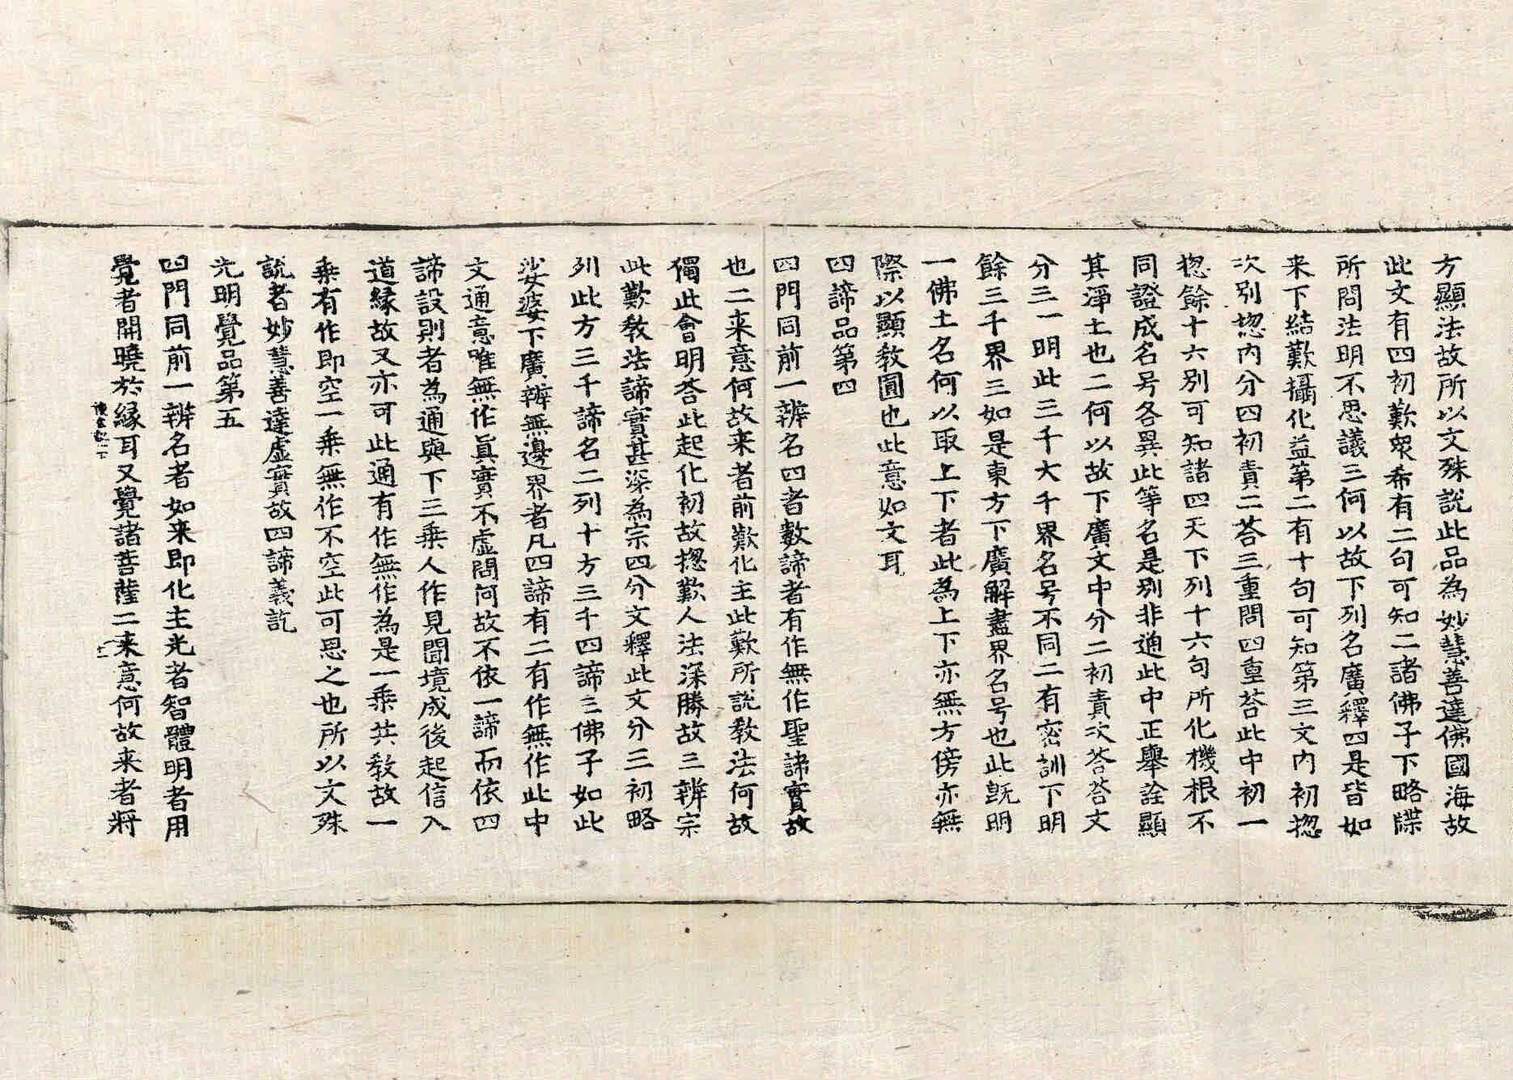 方顯法故所以文殊說此品為妙慧善達佛國海故
此文有四初歎衆希有二句可知二諸佛子下略牒
所問法明不思議三何以故下列名廣釋四是皆如
来下結歎攝化益第二有十句可知第三文内初揔
次別揔内分四初責二荅三重問四重荅此中初一
揔餘十六別可知諸四天下列十六句所化機根不
同證成名号各異此等名是別非通此中正舉詮顯
其淨土也二何以故下廣文中分二初責次荅荅文
分三一明此三千大千界名号不同二有密訓下明
餘三千界三如是東方下廣解盡界名号也此旣明
一佛土名何以取上下者此為上下亦無方傍亦無
際以顯教圓也此意如文耳
四諦品第四
四門同前一辨名四者數諦者有作無作聖諦實故
也二来意何故来者前歎化主此歎所說教法何故
獨此會明荅此起化初故揔歎人法深勝故三辨宗
此歎教法諦實甚深為宗四分文釋此文分三初略
列此方三千諦名二列十方三千四諦三佛子如此
娑婆下廣辨無邊界者凡四諦有二有作無作此中
文通意唯無作眞實不虛問何故不依一諦而依四
諦設則者為通與下三乗人作見聞境成後起信入
道縁故又亦可此通有作無作為是一乗共教故一
乗有作即空一乗無作不空此可思之也所以文殊
說者妙慧善達虛實故四諦義訖
光明覺品第五
四門同前一辨名者如来即化主光者智體明者用
覺者開曉於縁耳又覺諸菩薩二来意何故来者将